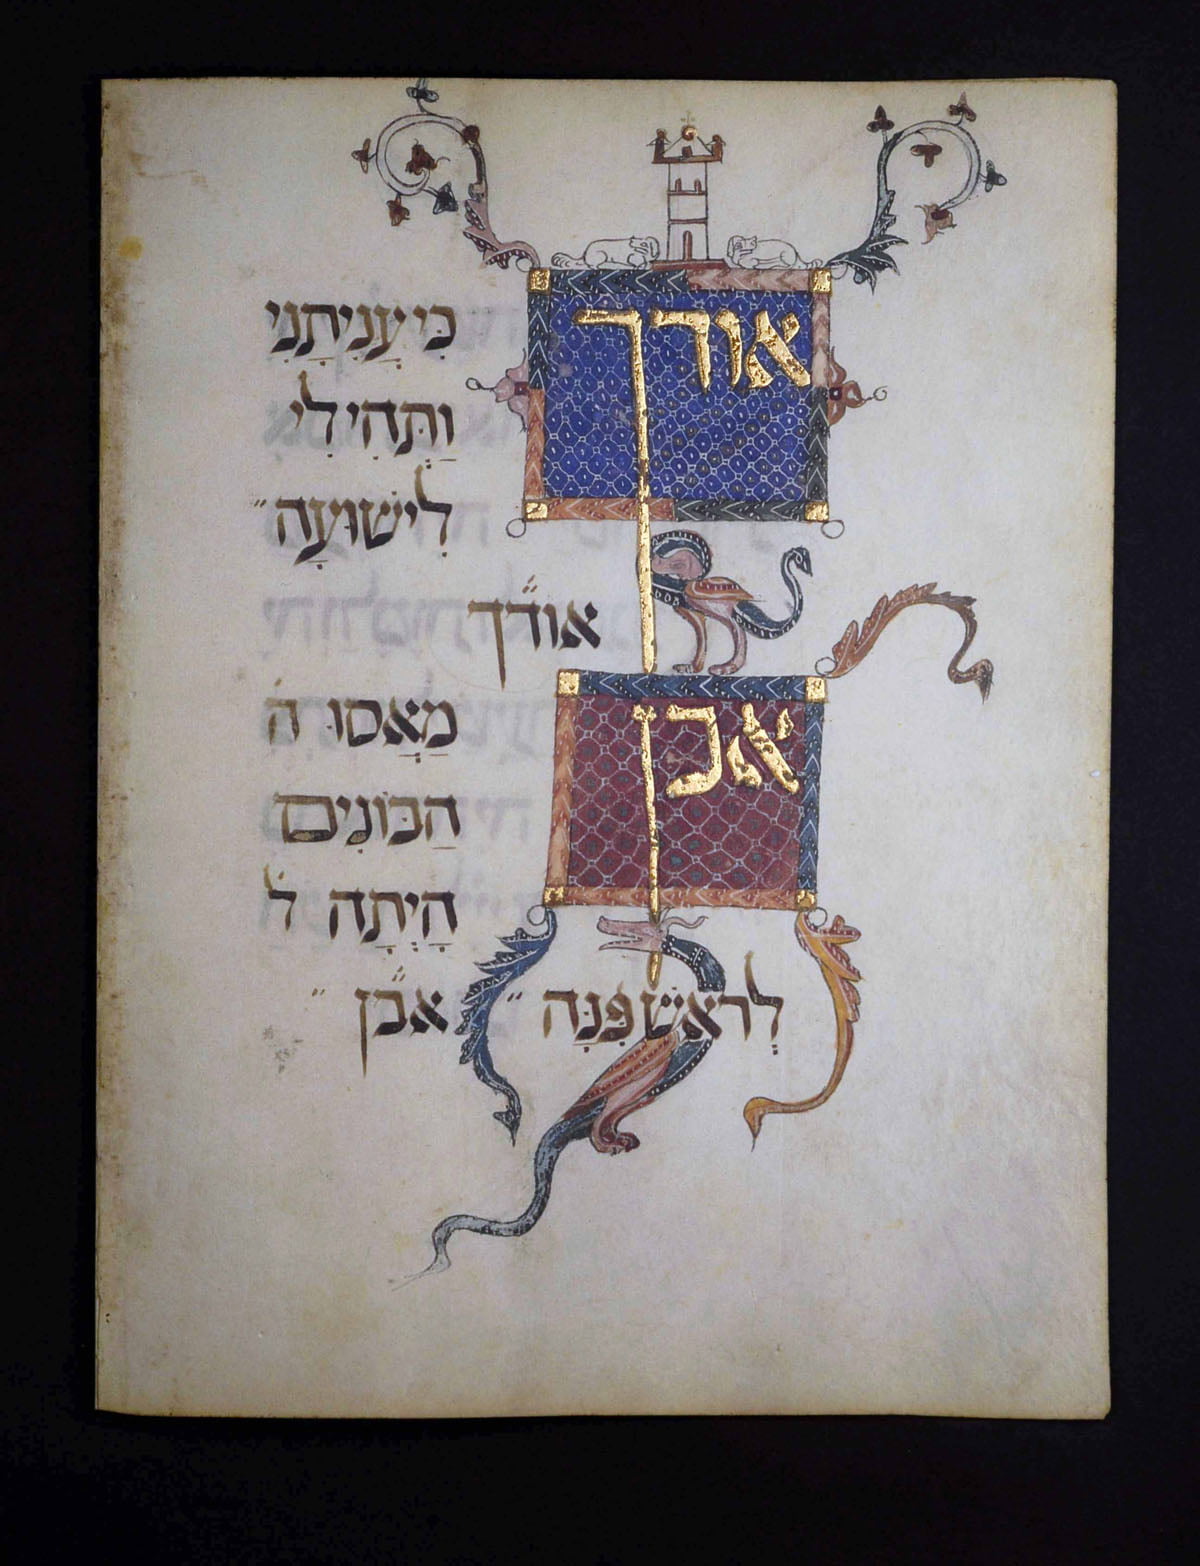 אודך כִּי עֲנִיתָנִי
וַתְּהִי לִי
לִישׁוּעָה ״
אוד״ך
אבן מָאֲסוּ ה
הַבּוֹנִים
הָיְתָה ל
לְראשׁ פִּנָּה ״ אב״ן ״